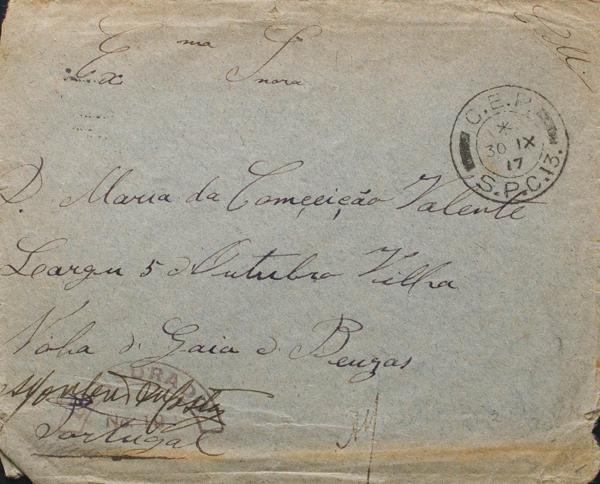 Exma Snora
C.E.P.
30 IX
17
S.P.C.13.
D. Maria da Comçeição Valente
Largu 5 d'Outubro Vilha
Noha d Gaia d Bengas
Nº 10
Portugal